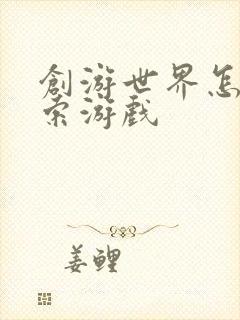 創游世界怎
索游戲
姜鲤